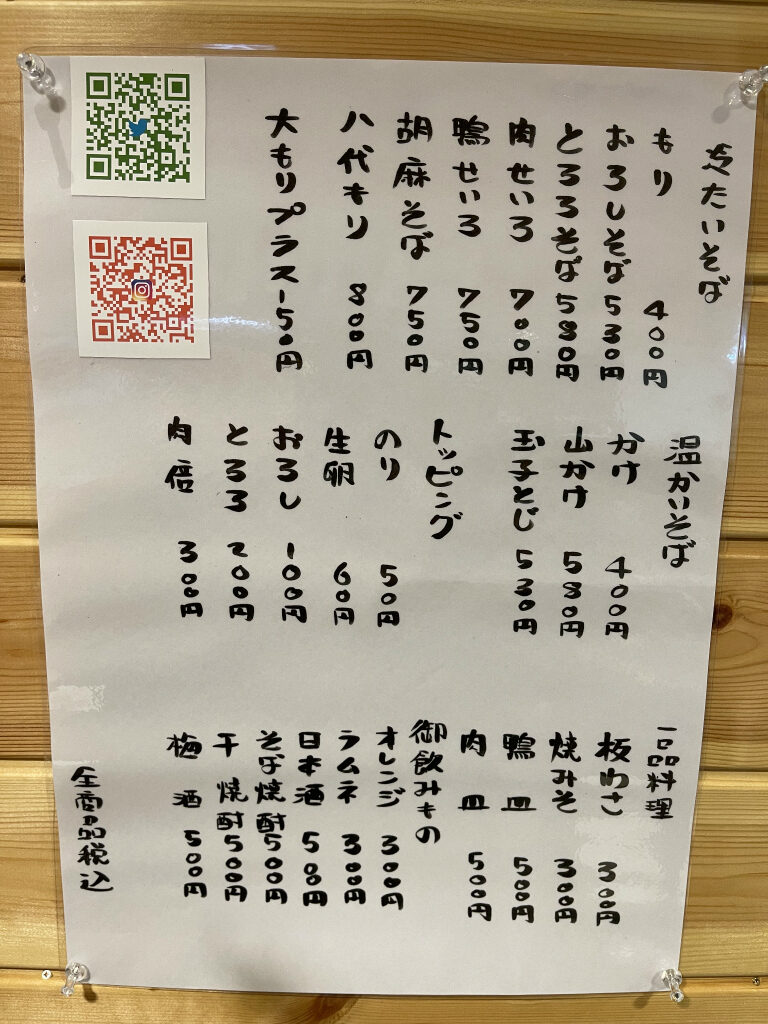 冷たいそば
もり 400円
おろしそば 530円
とろろそば 580円
肉せいろ 700円
鴨せいろ 750円
胡麻そば 750円
八代キリ 800円
大もりプラス150円
温かいそば
かけ 400円
山かけ 580円
玉子とじ 530円
トッピング
のり 50円
生卵 60円
おろし 100円
とろろ 200円
肉倍 300円
一品料理
板わさ 300円
焼みそ 300円
鴨皿 500円
肉皿 500円
御飲みもの
オレンジ 300円
ラムネ 300円
日本酒 500円
そば焼酎 500円
干焼酎 500円
梅酒 500円
全商品税込